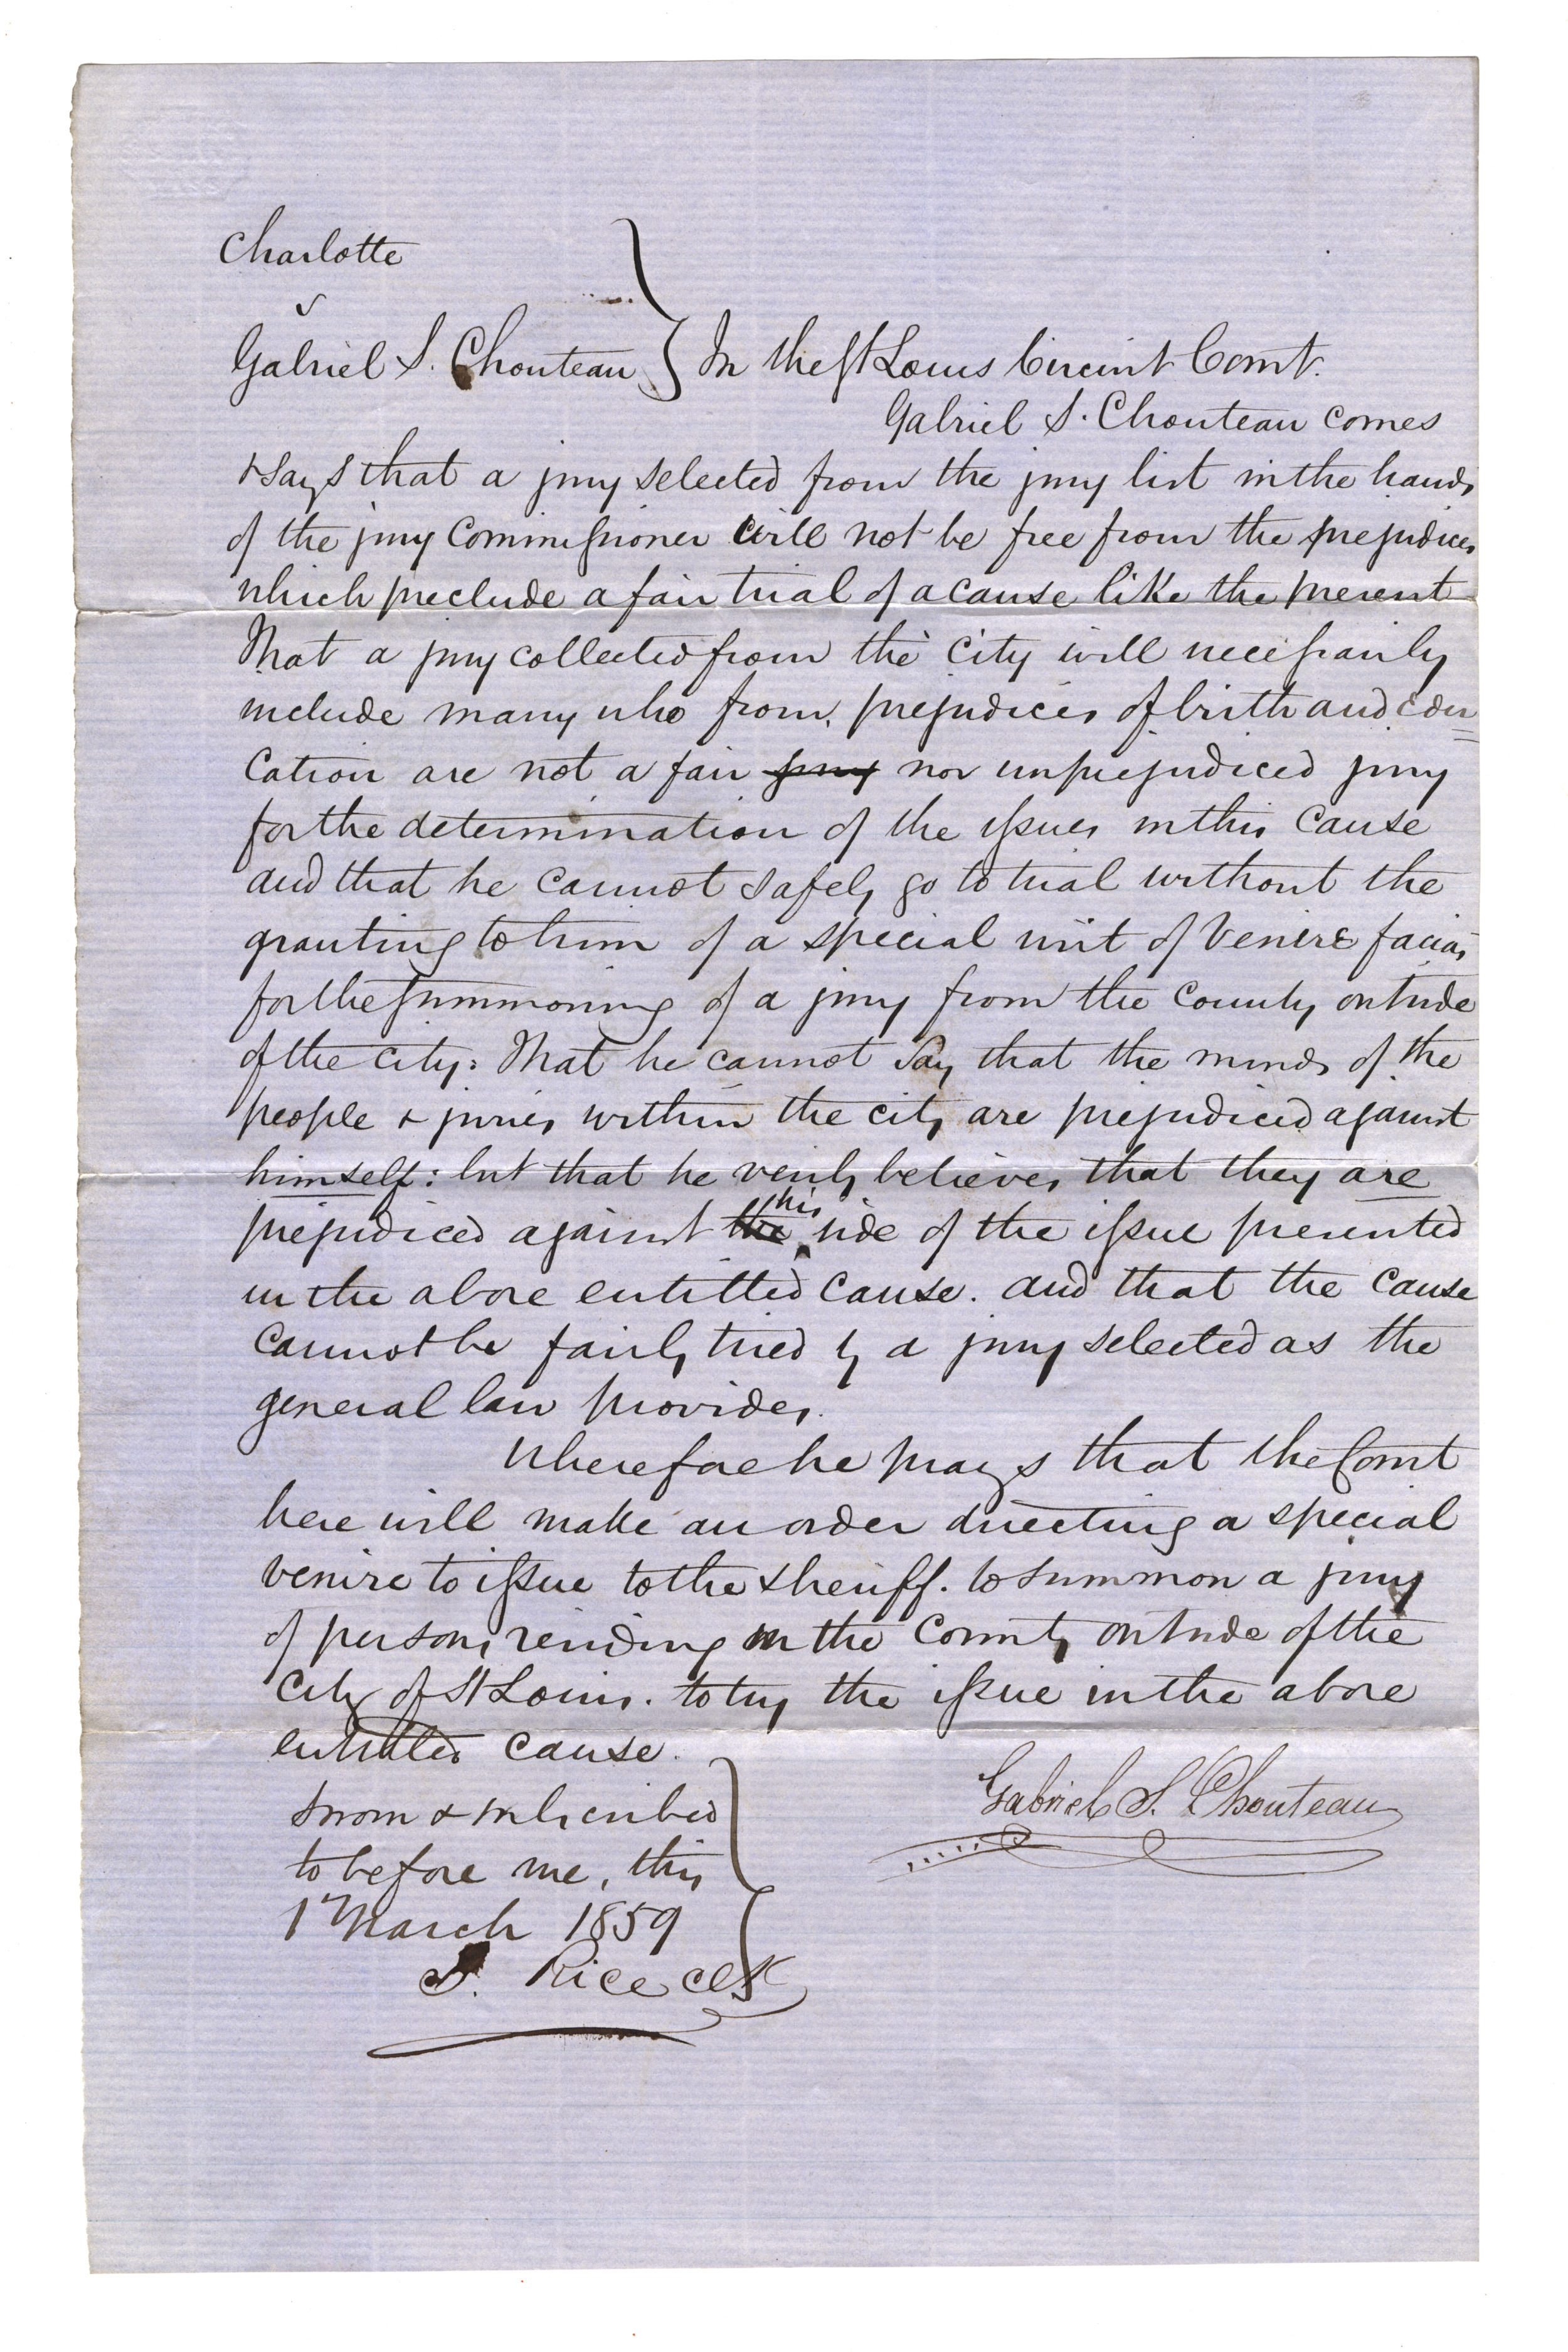 Charlotte
v
Gabriel S. Chouteau } In the St Louis Circuit Court.
Gabriel S. Chouteau comes
& says that a jury selected from the jury list in the hands
of the jury Commissioner will not be free from the prejudices
which preclude a fair trial of a cause like the present
That a jury collected from the City will necessarily
include many who from prejudices of birth and edu=
cation are not a fair jury nor unprejudiced jury
for the determination of the issues in this cause
and that he cannot safely go to trial without the
granting to him of a special writ of Venire facias
for the summoning of a jury from the County outside
of the City: That he cannot say that the minds of the
people & juries within the city are prejudiced against
himself: but that he verily believes that they are
prejudiced against the his side of the issue presented
in the above entitled cause. and that the cause
cannot be fairly tried by a jury selected as the
general law provides.
Wherefore he prays that the Court
here will make an order directing a special
venire to issue to the sheriff. to summon a jury
of persons residing in the County outside of the
City of St Louis. to try the issue in the above
entitled cause.
Sworn & subscribed
to before me, this
1 March 1859
S. Rice clk
Gabriel S. Chouteau